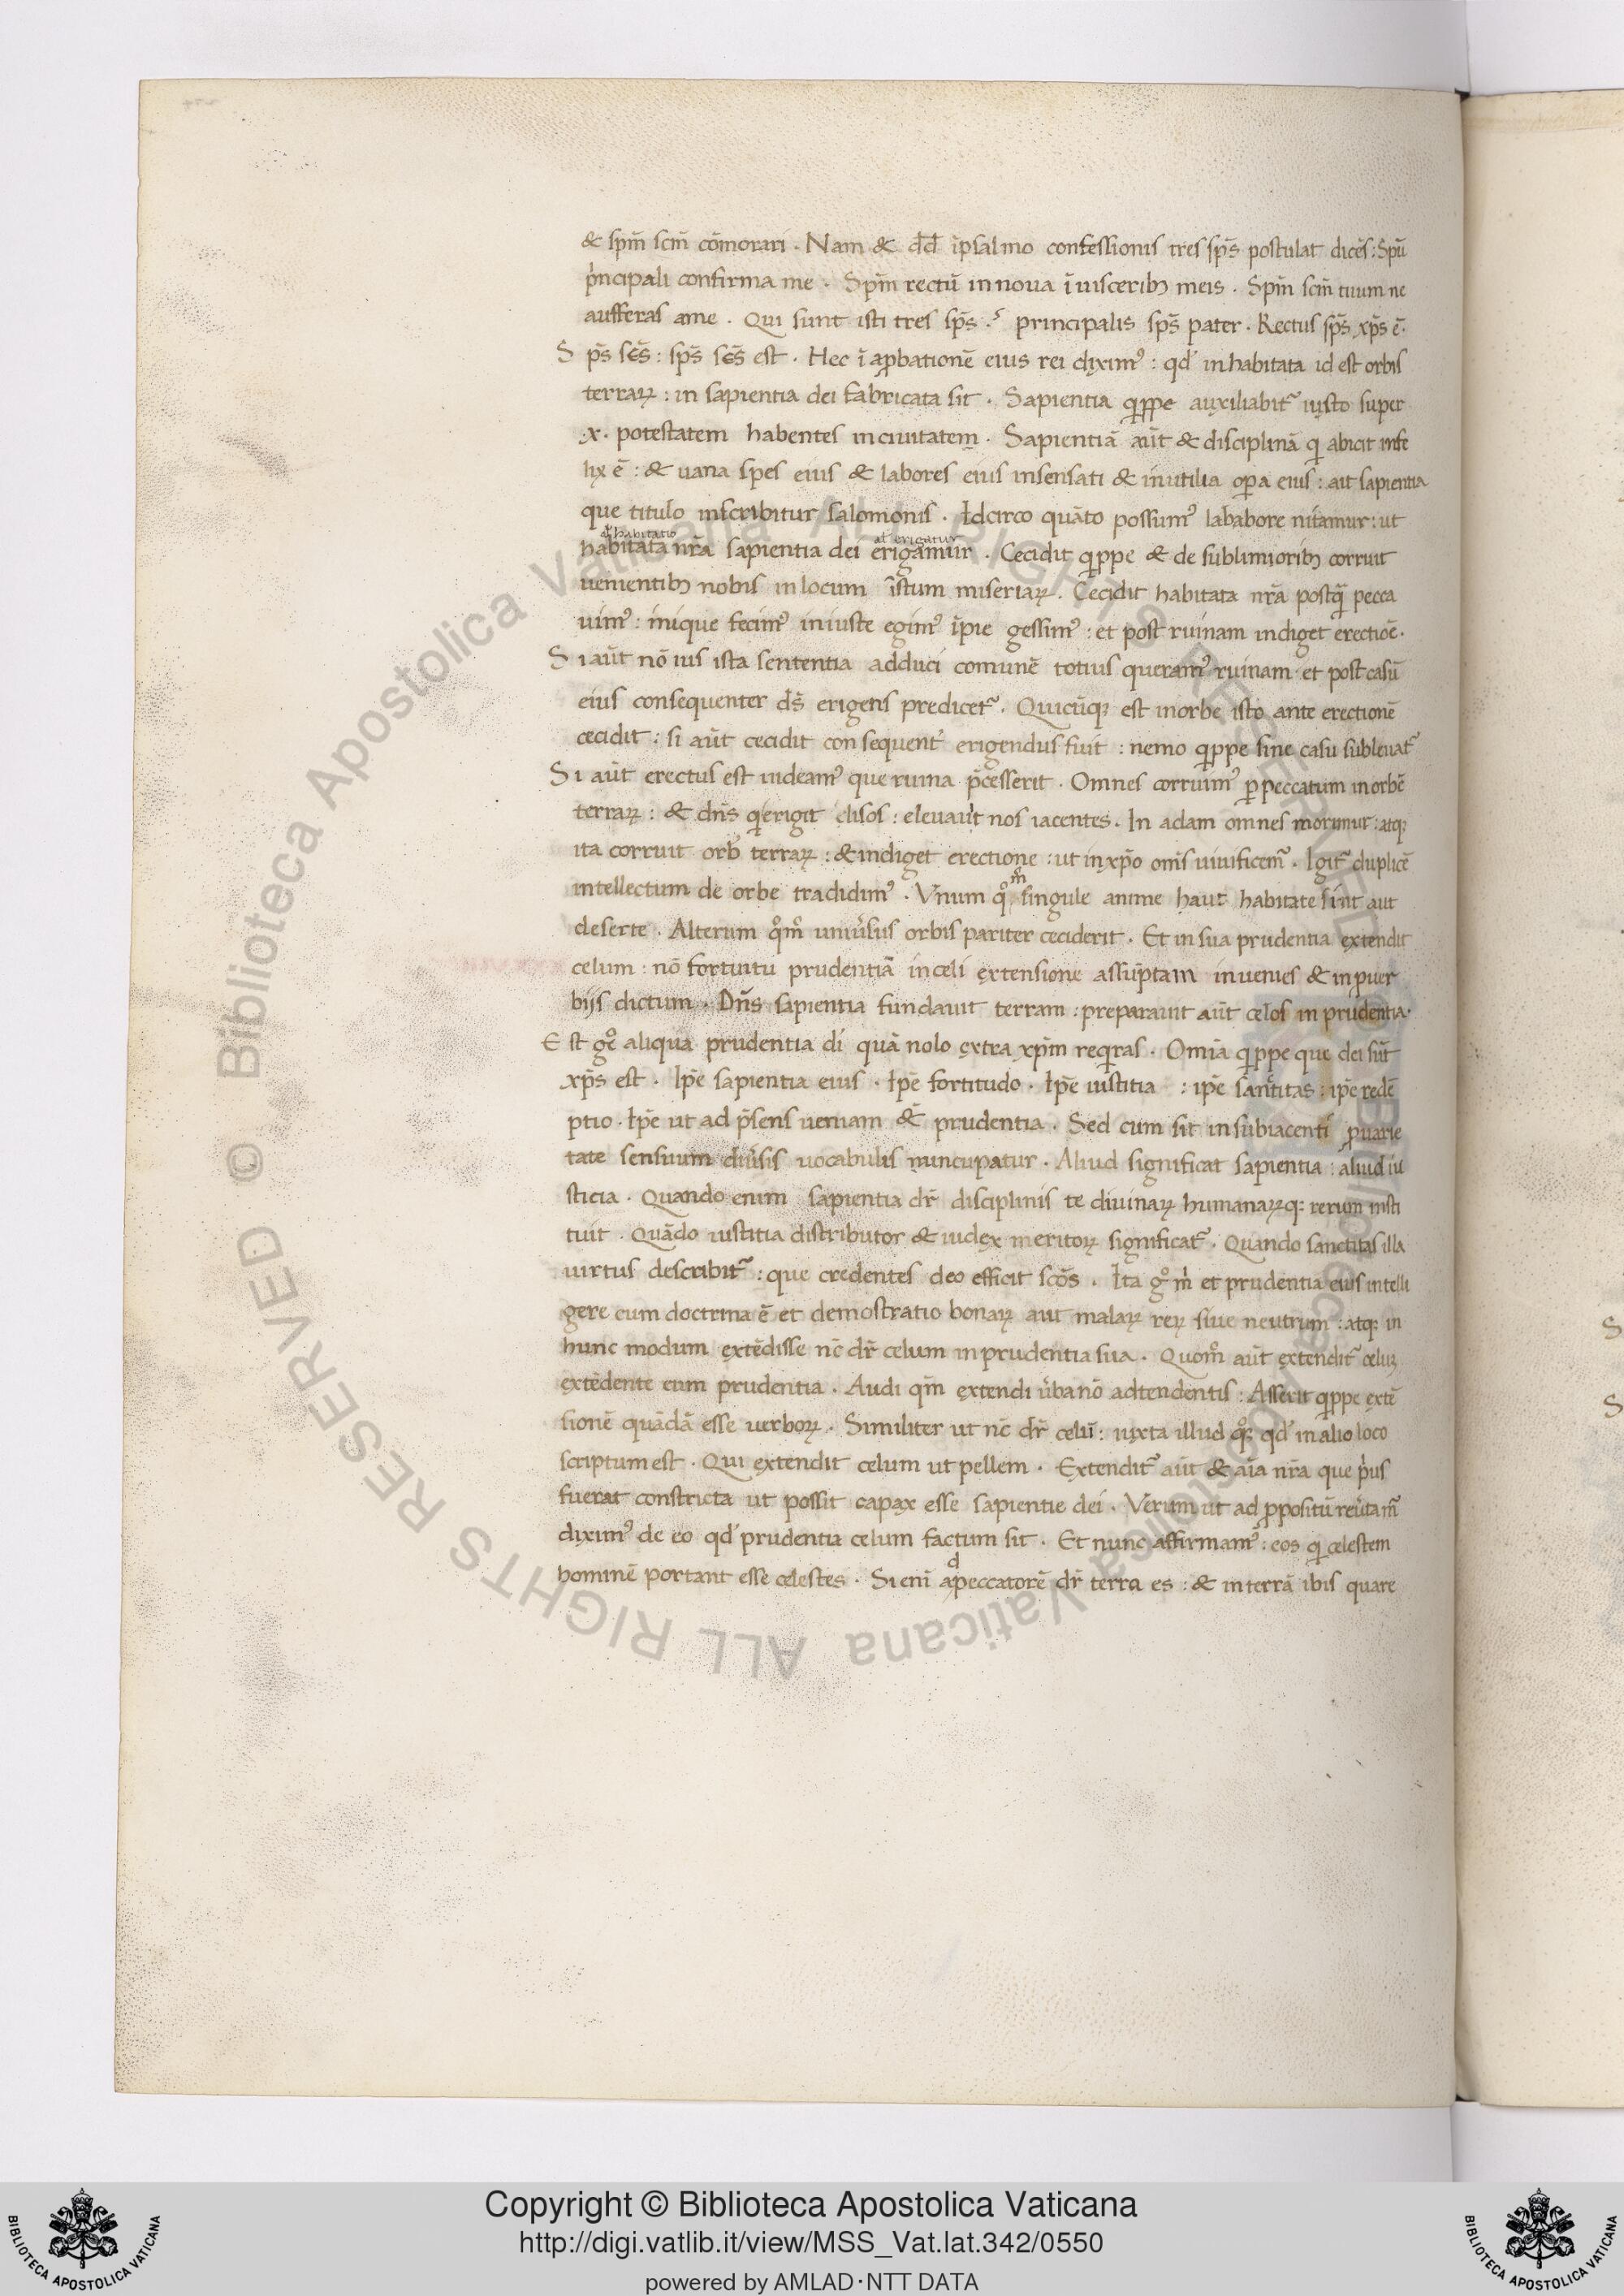 & sp̄m sc̄m cōmorari . Nam & dd̄ īpsalmo confessionis tres sp̄s postulat dicēs : Spū
p̍ncipali confirma me . Sp̄m rectū innova ī uisceribꝫ meis . Sp̄m sc̄m tuum ne
aufferas ame . Qui sunt isti tres sp̄s .ˢ principalis sp̄s pater . Rectus sp̄s xp̄s ē .
S p̄s sc̄s : sp̄s sc̄s est . Hec ī aꝓbationē eius rei dixim᾽ : qd̕ inhabitata id est orbis
terraꝝ : in sapientia dei fabricata sit . Sapientia q̍ppe auxiliabit᷑ iusto super
.x. potestatem habentes inciuitatem . Sapientiā aūt & disciplinā q̍ abicit infe
lix ē : & uana spes eius & labores eius insensati & inutilia oꝑa eius : ait sapientia
que titulo inscribitur salomonis . Idcirco quāto possum᾽ lababore nitamur : ut
al̕ habitatio al̕ erigatur
habitata nr̄a sapientia dei erigamur . Cecidit q̍ppe & de sublimioribꝫ corruit
uenientibꝫ nobis inlocum īstum miseriaꝝ . Cecidit habitata nr̄a postq̄ pecca
uim᾽ : inique fecim᾽ iniuste egim᾽ īpie gessim᾽ : et post ruinam indiget erectiōe .
S i aūt nō ius ista sententia adduci comunē totius queram᾽ ruinam et post casū
eius consequenter ds̄ erigens predicet᷑ . Quicūqꝫ est inorbe isto ante erectionē
cecidit : si aūt cecidit consequent̕ erigendus fuit : nemo q̍ppe sine casu subleuat᷑
S i aūt erectus est uideam᾽ que ruina p̄cesserit . Omnes corruim᾽ ꝑpeccatum inorbē
terraꝝ : & dn̄s q̍erigit elisos : eleuauit nos iacentes . In adam omnes morimur : atqꝫ
ita corruit orb̕ terraꝝ : & indiget erectione : ut inxp̄o om̄s uiuificem᷑ . Igit᷑ duplicē
intellectum de orbe tradidim᾽ . Vnum q̊ m̊ singule anime haut habitate sint aut
deserte . Alterum q̊m̊ uniu̕sus orbis pariter ceciderit . Et in sua prudentia extendit
celum : nō fortuitu prudentiā inceli extensione assūptam inuenies & inpuer
bijs dictum . Dn̄s sapientia fundauit terram : preparauit aūt celos in prudentia .
E st g̊e aliqua prudentia di quā nolo extra xp̄m req̍ras . Omīa q̍ppe que dei sūt
xp̄s est . Ip̄e sapientia eius . Ip̄e fortitudo . Ip̄e iustitia : ip̄e sanctitas : ip̄e redē
ptio . Ip̄e ut ad p̄sens ueniam & prudentia . Sed cum sit insubiacenti ꝓuarie
tate sensuum diu̕sis uocabulis nuncupatur . Aliud significat sapientia : aliud iu
sticia . Quando enim sapientia dr̄ disciplinis te diuinaꝝ humanaꝝqꝫ rerum insti
tuit . Quādo iustitia distributor & iudex meritoꝝ significat᷑ . Quando sanctitas illa
uirtus describit᷑ : que credentes deo efficit scōs . Ita g̊ m̍ et prudentia eius intelli
gere cum doctrina ē et demostratio bonaꝝ aut malaꝝ reꝝ siue neutrum : atqꝫ in
hunc modum extēdisse nc̄ dr̄ celum inprudentia sua . Quom̊ aūt extendit᷑ celuꝫ
extēdente eum prudentia . Audi qm̄ extendi u̕ba nō adtendentis : Asserit q̍ppe extē
sionē quādā esse uerboꝝ . Similiter ut nc̄ dr̄ celū : iuxta illud q̊qꝫ qd̕ inalio loco
scriptum est . Qui extendit celum ut pellem . Extendit᷑ aūt & aīa nr̄a que p̍us
fuerat constricta ut possit capax esse sapientie dei . Verum ut ad ꝓpositū reu̕tam᷑
dixim᾽ de eo qd̕ prudentia celum factum sit . Et nunc affirmam᾽ : eos q̍ celestem
hominē portant esse celestes . Si enī adpeccatorē dr̄ terra es : & interrā ibis quare